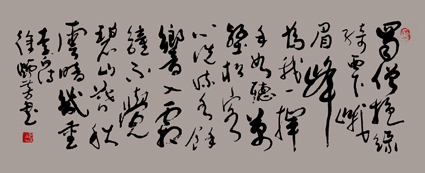 蜀僧抱綠
綺西下峨
眉峰
為我一揮
手如聽萬
壑松客
心洗流水餘
響入霜
鐘不覺
碧山暮秋
雲暗幾重
李白詩
徐芳書